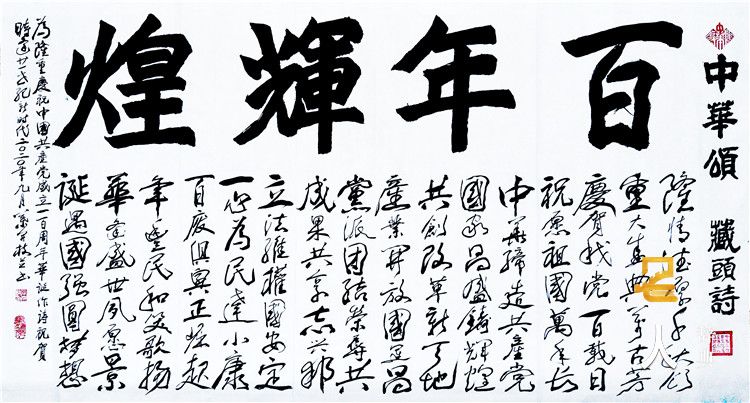 中華頌 藏頭詩
百年輝煌
隆情千秋頌
重大典千古芳
慶賀我党百載日
祝愿祖國萬年長
中華締造共產党
國家昌盛鑄輝煌
共創改革新天地
產業開放國運昌
黨派團結榮辱共
成果共享志兴邦
立法維權國安定
一心為民達小康
百廢俱興正崛起
年豐民和笑歌揚
華章盛世夙愿景
誕遇國强圓梦想
為隆重慶祝中國共產党成立一百周年華誕作詩祝賀
時逢廿一世紀新時代二〇二〇年九月